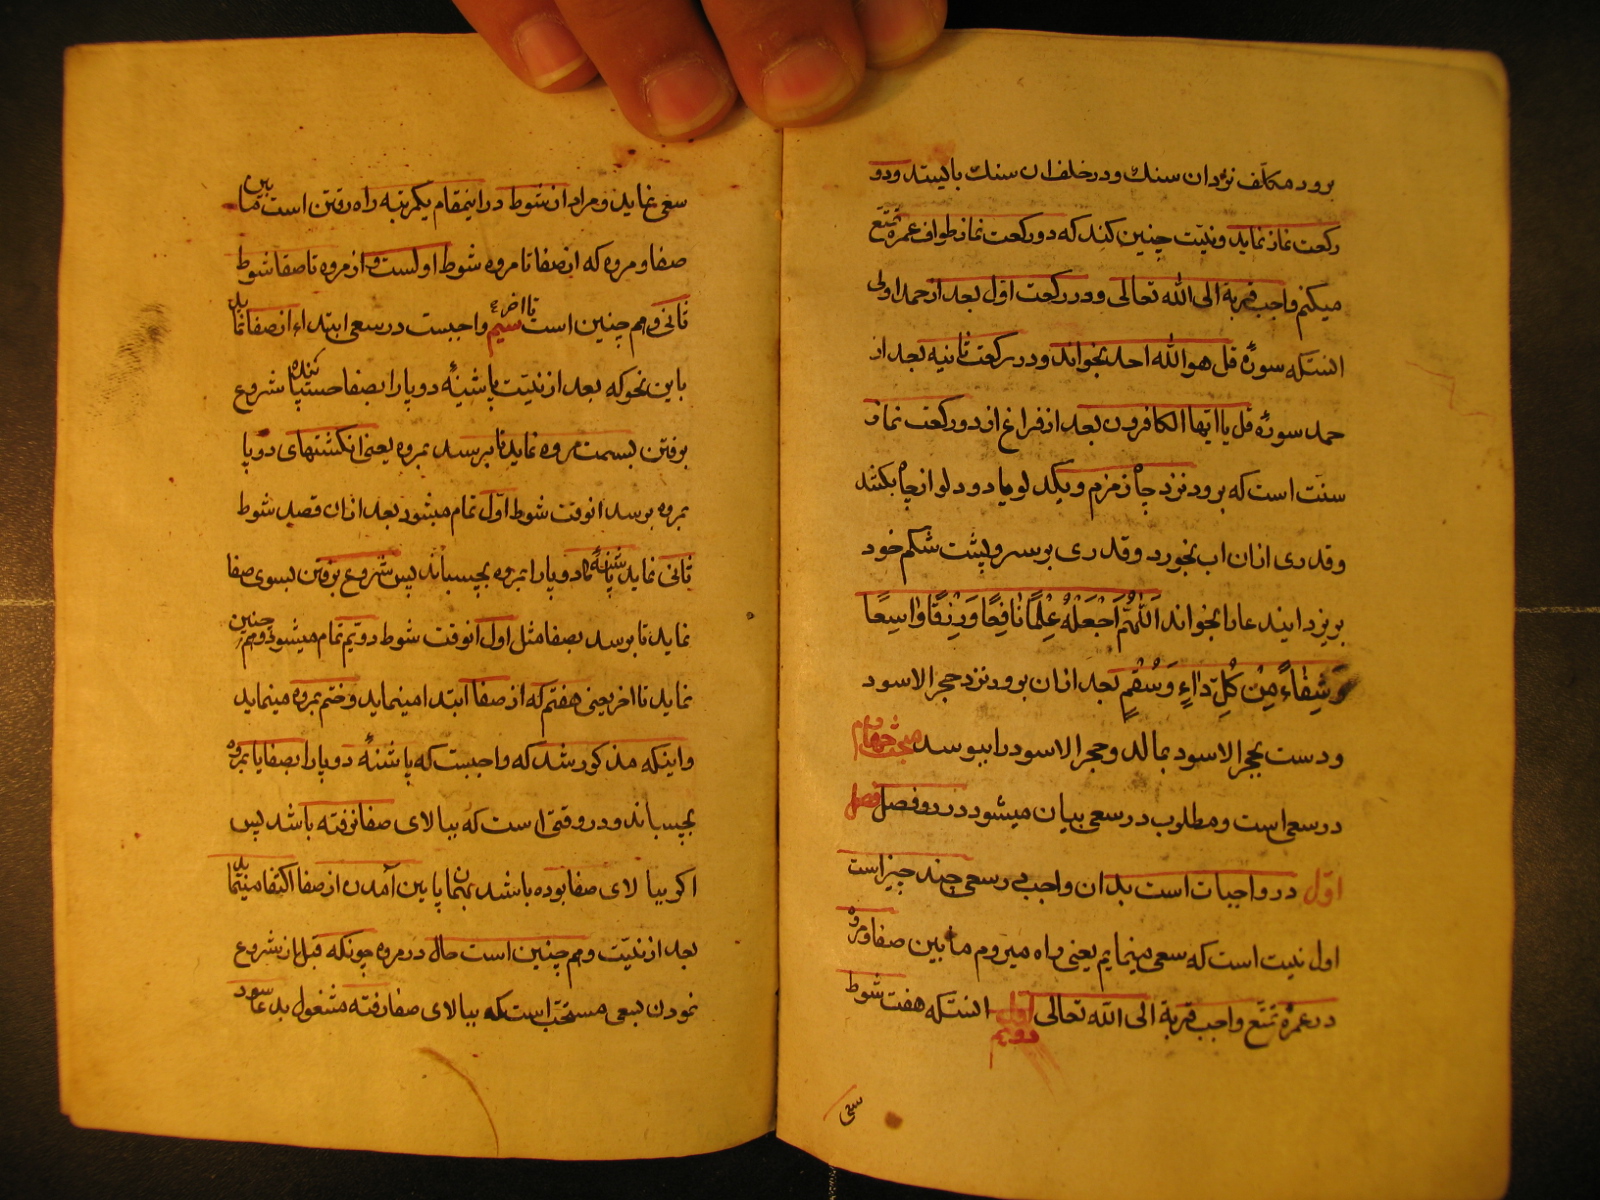 برود مکلف نزد ان سنك و در خلف ان سنك بایستد و دو
رکعت نماز نماید و نیّت چنین کند که دو رکعت نماز طواف عمرهٔ تمتّع
میکنم واجب قربة الی الله تعالی و در رکعت اوّل بعد از حمد اولی
انستکه سورهٔ قل هو الله احد بخواند و در رکعت ثانیه بعد از
حمد سورهٔ قل یا ایّها الکافرون بعد از فراغ از دو رکعت نماز
سنّت است که برود نزد چاه زمزم و یکدلو یا دو دلو از چاه بکشد
و قدری ازان اب بخورد و قدری بر سر و پشت شکم خود
بریزد ایندعا را بخواند اَللّٰهُمَّ اجْعَلْهُ عِلْمًا نٰافِعًا وَرِزْقًا وٰاسِعًا
وَشِفٰاءً مِنْ کُلِّ دٰاءٍ وَسُقْمٍ بعد ازان برود نزد حجر الاسود
و دست بحجر الاسود بمالد و حجر الاسود را ببوسد مبحث چهارم
در سعی است و مطلوب در سعی بیان میشود در دو فصل فصل
اوّل در واجبات است بدان واجب در سعی چند چیز است
اول نیّت است که سعی مینمایم یعنی راه میروم ما بین صفا و مروه
در عمرهٔ تمتّع واجب قربة الی الله تعالی اول دویم انستکه هفت شوط
سعی
سعی نماید و مراد از شوط در اینمقام یکمرتبه راه رفتن است ما بین
صفا و مروه که از صفا تا مروه شوط اولست و از مروه تا صفا شوط
ثانی و هم چنین است تا اخر سیم واجبست در سعی ابتداء از صفا نماید
باین نحو که بعد از نیّت پاشنهٔ دو پا را بصفا چسپانده شروع
برفتن بسمت مروه نماید تا برسد بمروه یعنی انکشتهای دو پا
بمروه برسد انوقت شوط اوّل تمام میشود بعد ازان قصد شوط
ثانی نماید پاشنهٔ دو پا را بمروه بچسباند پس شروع برفتن بسوی صفا
نماید تا برسد بصفا مثل اول انوقت شوط دویّم تمام میشود و هم چنین
نماید تا اخر یعنی هفتم که از صفا ابتدا مینماید و ختم بمروه مینماید
و اینکه مذکور شد که واجبست که پاشنهٔ دو پا را بصفا یا بمروه
بچسباند در وقتی است که ببالای صفا نرفته باشد پس
اکر ببالای صفا بوده باشد بهمان پایین آمدن از صفا اکتفا مینماید
بعد از نیّت و هم چنین است حال در مروه چونکه قبل از شروع
نمودن بسعی مستحبّ است که ببالای صفا رفته مشغول بدعا شود